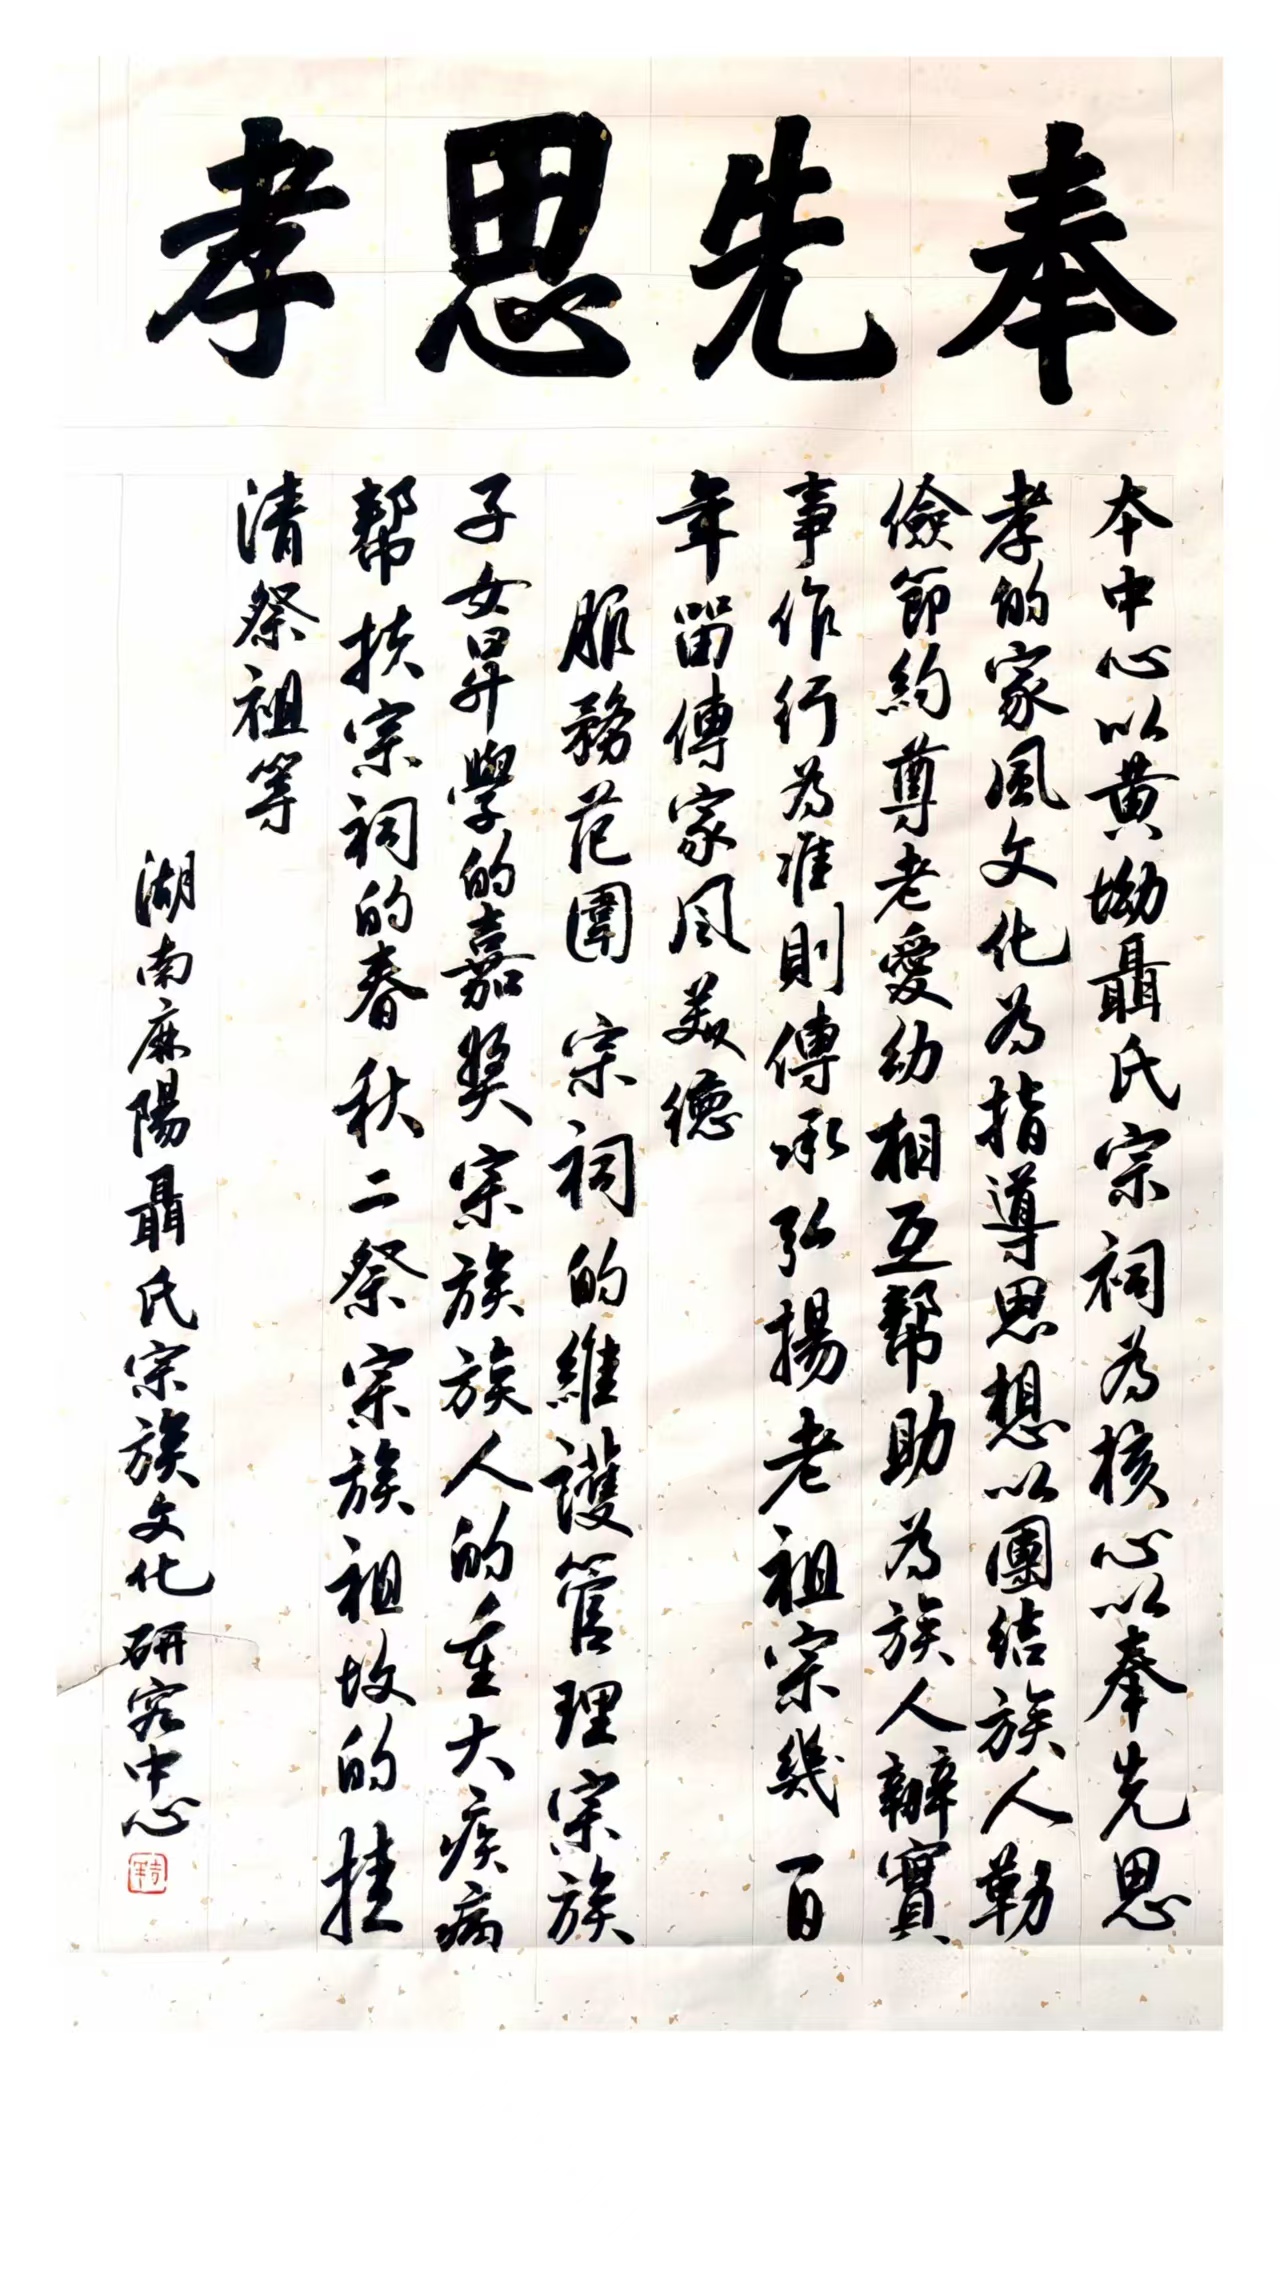 奉先思孝
本中心以黄坳聶氏宗祠為核心以奉先思
孝的家風文化為指導思想以團结族人勤
儉節約尊老愛幼相互幫助為族人辦實
事作行為准則傳承弘揚老祖宗幾百
年留傳家风美德
服務范圍 宗祠的維護管理宗族
子女昇學的嘉奖宗族族人的重大疾病
幫扶宗祠的春秋二祭宗族祖坟的挂
清祭祖等
湖南麻陽聶氏宗族文化研究中心